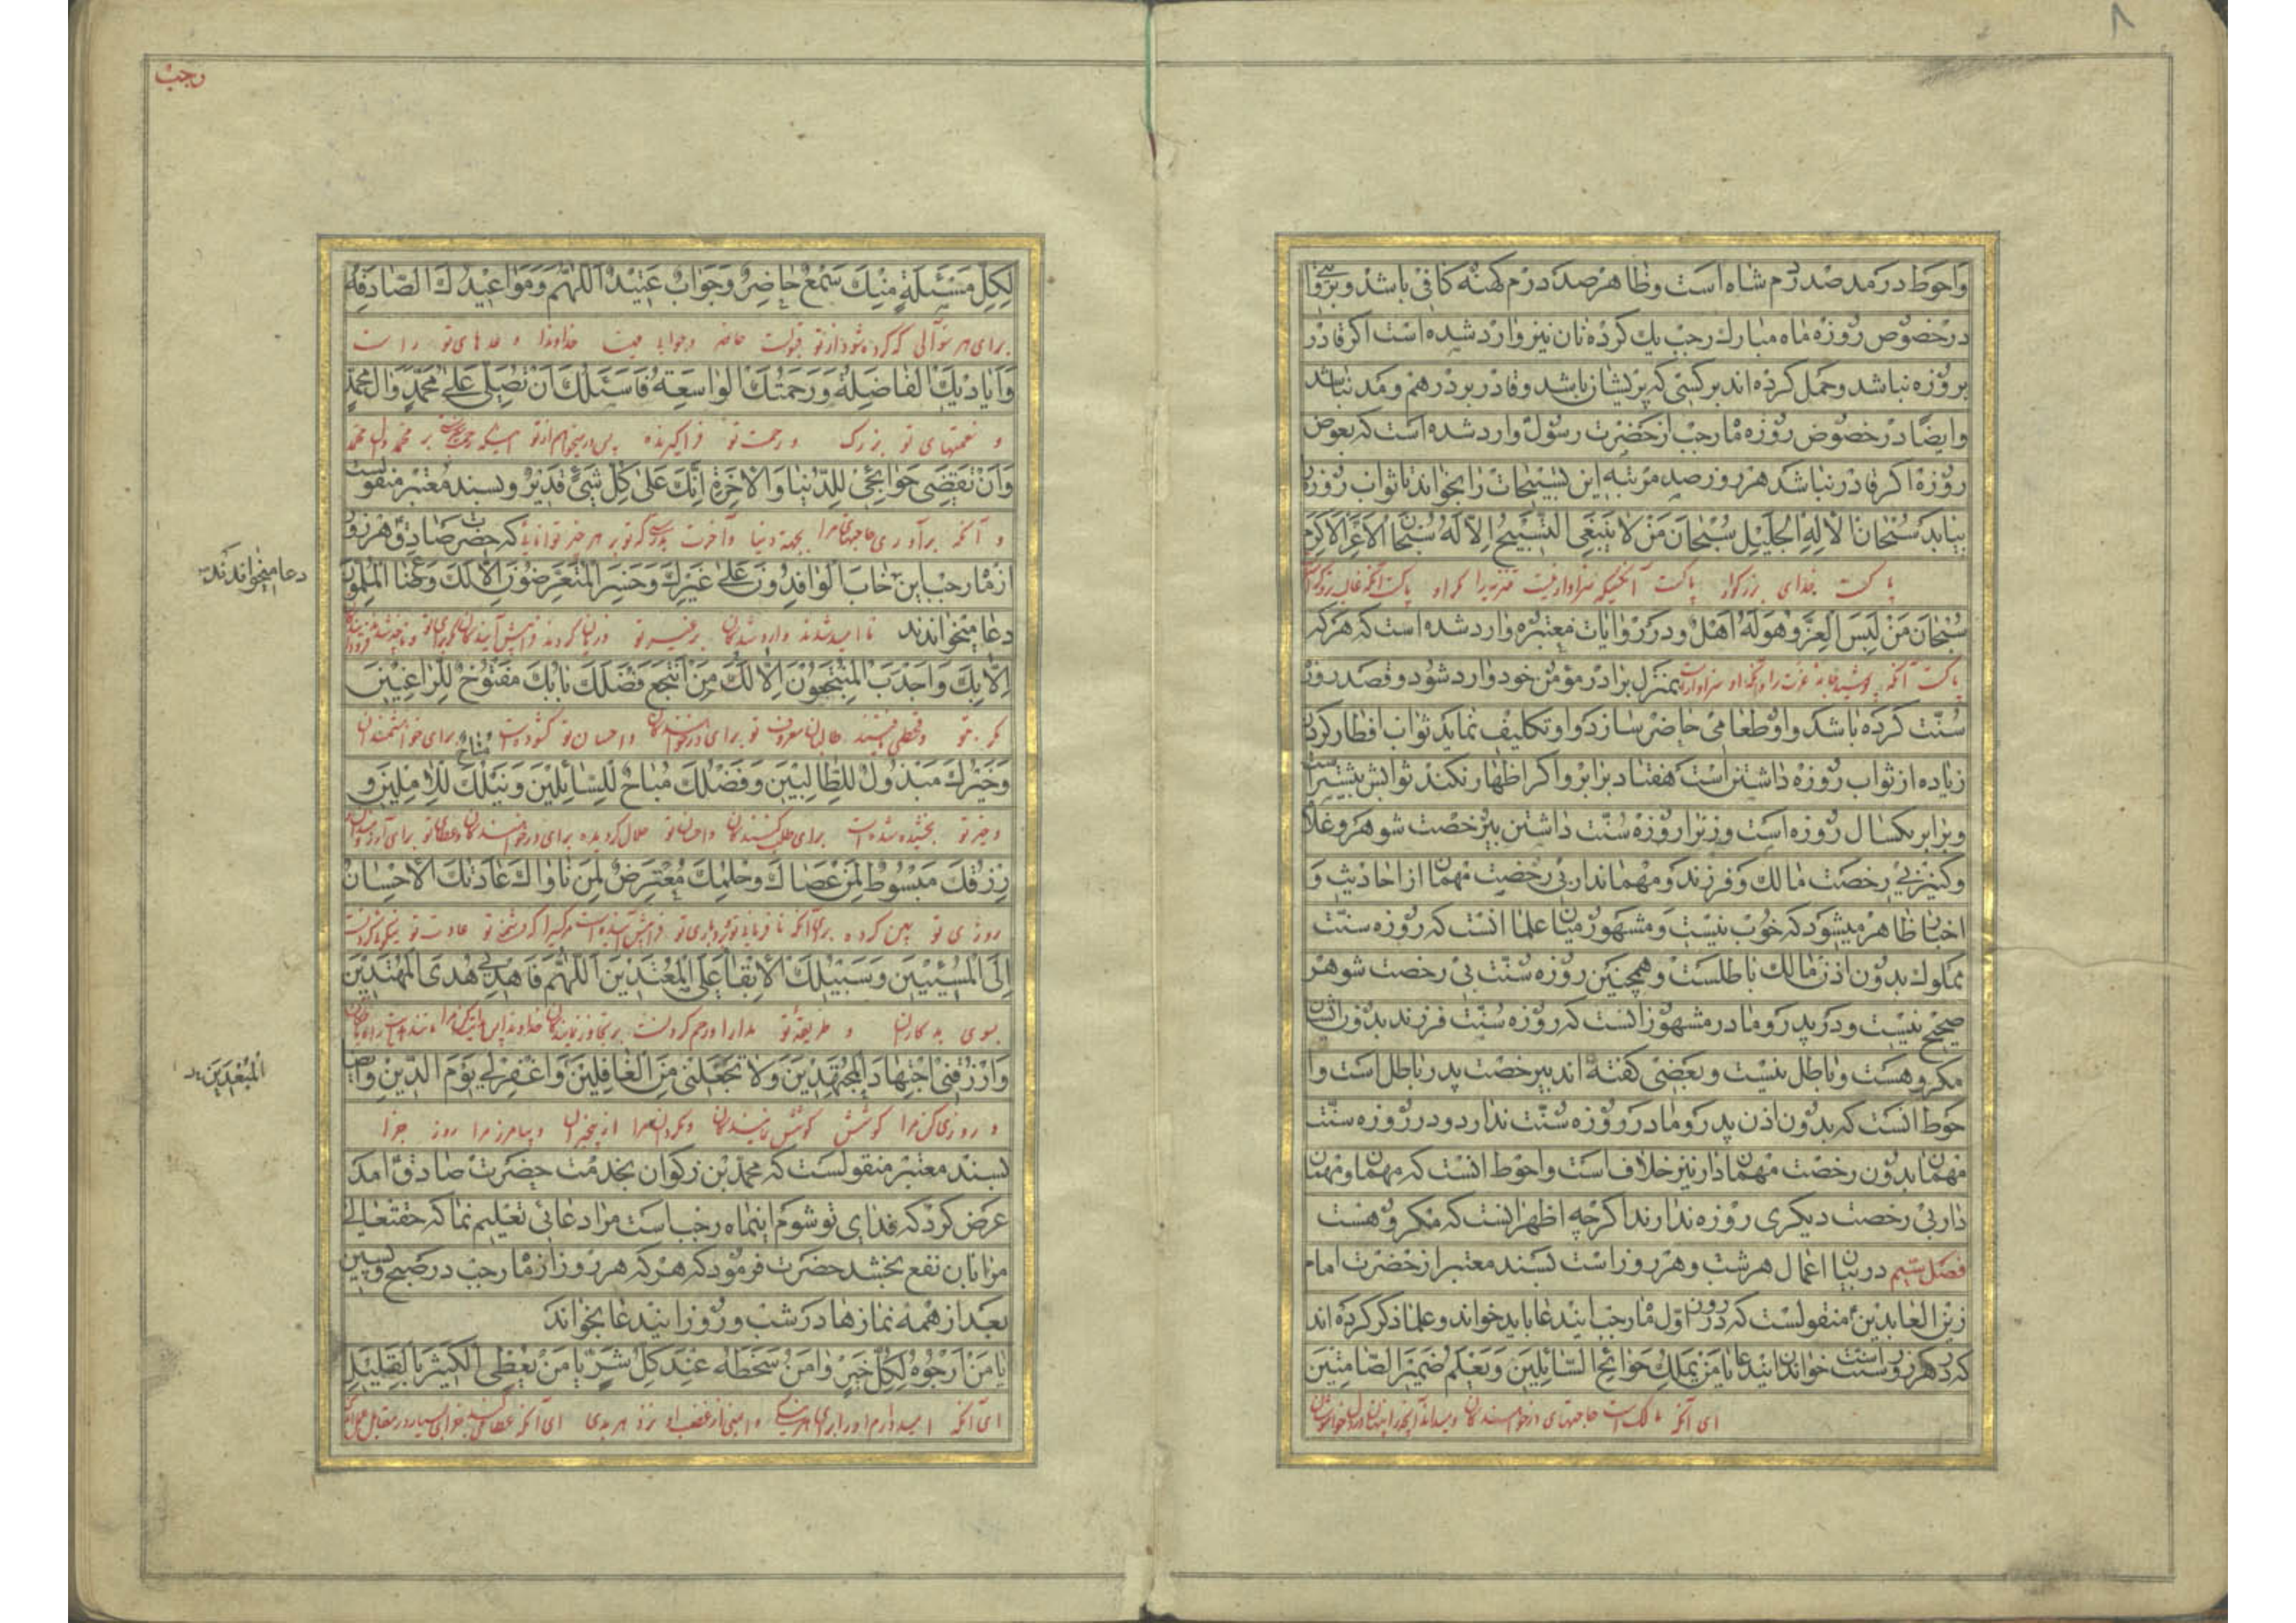 ٨
واحوط در مد صد درم شاه است وظاهر صد درم کهنه کافی باشد و بروایتی
در خصوص روزه ماه مبارك رجب یك کرده نان نیز وارد شده است اکر قادر
بر روزه نباشد وحمل کرده اند بر کسی که پریشان باشد وقادر بر درهم و مد نباشد
وایضا در خصوص روزه ماه رجب از حضرت رسول وارد شده است که بعوض
روزه اکر قادر نباشد هر روز صد مرتبه این تسبیحات را بخواند تا ثواب روزه را
بیابد سُبْحانَ الْاِلهِ الْجَلیلِ سُبْحانَ مَنْ لا یَنْبَغِی التَّسْبیحُ اِلّا لَهُ سُبْحانَ الْاَعَزِّ الْاَکْرَمِ
پاکست خدای بزرکوار پاکست آنکسیکه سزاوار نیست تنزیه را مکر او پاکست
سُبْحانَ مَنْ لَبِسَ الْعِزَّ وَهُوَ لَهُ اَهْلٌ ودر روایات معتبره وارد شده است که هر که
پاکست آنکه پوشید عزت را بمنزل برادر مؤمن خود وارد شود وقصد روزه
سنّت کرده باشد واو طعامی حاضر سازد واو تکلیف نماید ثواب افطار کردن
زیاده از ثواب روزه داشتن است هفتاد برابر واکر اظهار نکند ثوابش بیشتر است
وبرابر یکسال روزه است وزنرا روزه سنّت داشتن بیرخصت شوهر وغلام
وکنیز بی رخصت مالك وفرزند ومهماندار بی رخصت مهمان از احادیث و
اخبار ظاهر میشود که خوب نیست ومشهور میان علما انست که روزه سنّت
مملوك بدون اذن مالك باطلست وهمچنین روزه سنّت بی رخصت شوهر
صحیح نیست ودر پدر ومادر مشهور انست که روزه سنّت فرزند بدون اذن
مکروهست وباطل نیست وبعضی کفته اند بیرخصت پدر باطل است وا
حوط انست که بدون اذن پدر ومادر روزه سنّت ندارد ودر روزه سنّت
مهمان بدون رخصت مهماندار نیز خلاف است واحوط انست که مهمان ومهمان
دار بی رخصت دیکری روزه ندارند اکرچه اظهر انست که مکروهست
فصل سیم در بیان اعمال هر شب وهر روز است بسند معتبر از حضرت امام
زین العابدین منقولست که در روز اول ماه رجب ایندعا باید خواند وعلما ذکر کرده اند
که در هر روز سنت است خواندن ایندعا یا مَنْ یَمْلِكُ حَوائِجَ السّائِلینَ وَیَعْلَمُ ضَمیرَ الصّامِتینَ
ای آنکه مالک است حاجتهای درخواست کنندکان ومیداند
رجب
لِکُلِّ مَسْئَلَةٍ مِنْكَ سَمْعٌ حاضِرٌ وَجَوابٌ عَتیدٌ اَللّهُمَّ وَمَواعیدُكَ الصّادِقَةُ
برای هر سؤالی که کرده شود از تو حاضر وجواب خداوندا و وعدهای تو راست
وَاَیادیكَ الْفاضِلَةُ وَرَحْمَتُكَ الْواسِعَةُ فَاَسْئَلُكَ اَنْ تُصَلِّیَ عَلی مُحَمَّدٍ وَالِ مُحَمَّدٍ
و نعمتهای تو بزرک و رحمت تو فراکیرنده پس درمیخواهم از تو اینکه رحمت بر محمد وال محمد
وَاَنْ تَقْضِیَ حَوائِجی لِلدُّنْیا وَالْاخِرَةِ اِنَّكَ عَلی کُلِّ شَیْءٍ قَدیرٌ وبسند معتبر منقولست
و آنکه برآوری حاجتهای مرا بجهة دنیا وآخرت بدرستیکه تو بر هر چیز توانایی که حضرت صادق هر روز
دعا میخواندند
از ماه رجب این خابَ الْوافِدُونَ عَلی غَیْرِكَ وَخَسِرَ الْمُتَعَرِّضُونَ اِلّا لَكَ وَضاعَ الْمُلِمُّونَ
دعا میخواندند نا امید شدند وارد شدکان بر غیر تو وزیان کردند
اِلّا بِكَ وَاَجْدَبَ الْمُنْتَجِعُونَ اِلّا لَكَ مَنِ انْتَجَعَ فَضْلَكَ بابُكَ مَفْتُوحٌ لِلرّاغِبینَ
وَخَیْرُكَ مَبْذُولٌ لِلطّالِبینَ وَفَضْلُكَ مُباحٌ لِلسّائِلینَ وَنَیْلُكَ لِلْامِلینَ وَ
وخیر تو بخشیده شده است برای طلب کنندکان واحسان تو حلال کردیده برای درخواست کنندکان وعطای تو برای
رِزْقُكَ مَبْسُوطٌ لِمَنْ عَصاكَ وَحِلْمُكَ مُعْتَرِضٌ لِمَنْ ناواكَ عادَتُكَ الْاِحْسانُ
روزی تو پهن کرده برای آنکه نافرمانی تو وبردباری تو عادت تو نیکوی کردنست
اِلَی الْمُسیئینَ وَسَبیلُكَ الْاِبْقاءُ عَلَی الْمُعْتَدینَ اَللّهُمَّ فَاهْدِنی هُدَی الْمُهْتَدینَ
بسوی بدکاران و طریقه تو مدارا ورحم کردنست بر تجاوز نمایندکان خداوندا پس
وَارْزُقْنی اجْتِهادَ الْمُجْتَهِدینَ وَلا تَجْعَلْنی مِنَ الْغافِلینَ وَاغْفِرْ لی یَوْمَ الدّینِ وایضا
المبعدین
و روزی کن مرا کوشش کوشش نمایندکان ومکردان مرا از بیخبران وبیامرز مرا روز جزا
بسند معتبر منقولست که محمد بن زکوان بخدمت حضرت صادق آمد
عرض کرد که فدای تو شوم اینماه رجب است مرا دعائی تعلیم نما که حقتعالی
مرا بان نفع بخشد حضرت فرمود که هر که هر روز از ماه رجب در صبح وپسین
بعد از همه نمازها در شب وروز ایندعا بخواند
یا مَنْ اَرْجُوهُ لِکُلِّ خَیْرٍ وَامَنُ سَخَطَهُ عِنْدَ کُلِّ شَرٍّ یا مَنْ یُعْطِی الْکَثیرَ بِالْقَلیلِ
ای آنکه امید دارم او را برای هر نیکی وایمنی از غضب او نزد هر بدی ای آنکه عطا